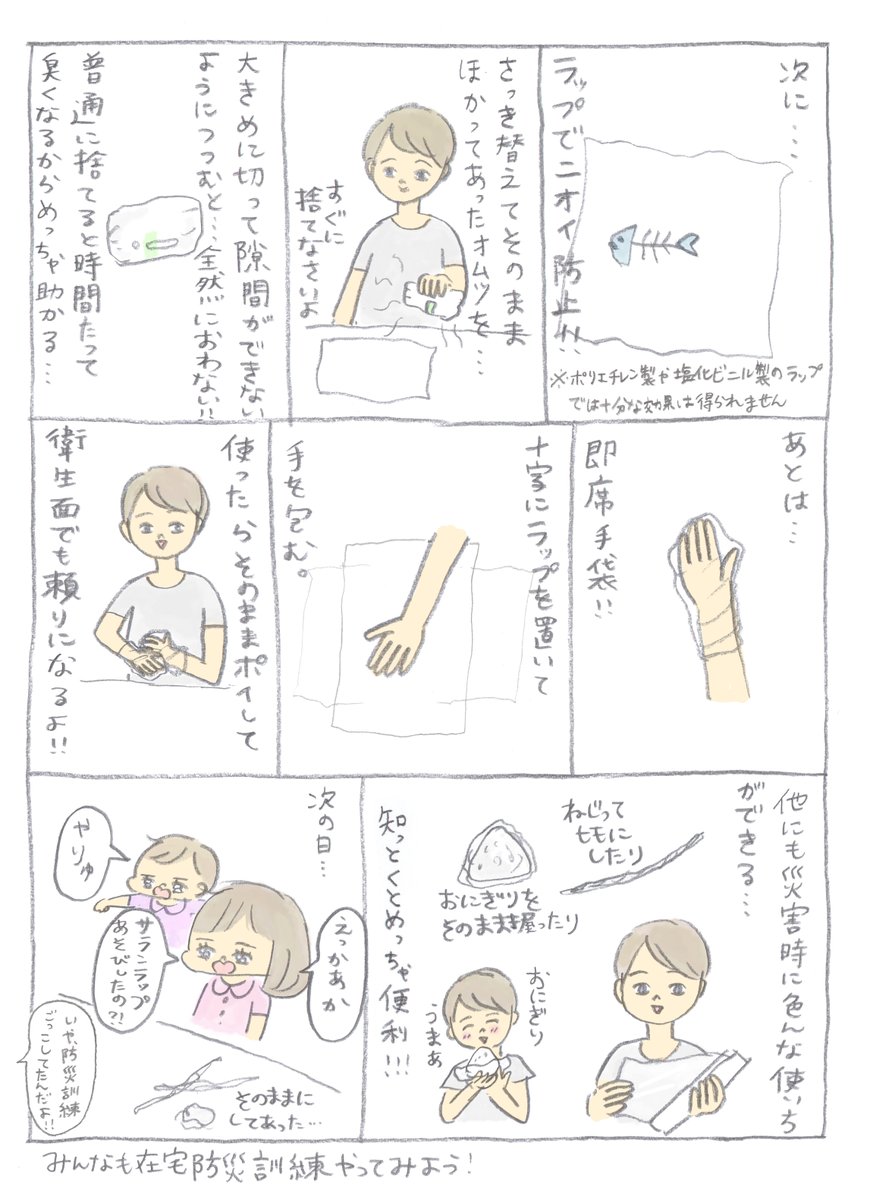 次に…
ラップでニオイ防止!!
※ポリエチレン製や塩化ビニル製のラップ
では十分な効果は得られません
さっき替えてそのまま
ほかってあったオムツを…
すぐに
捨てなさいよ
大きめに切って隙間ができない
ようにつつむと…全然におわない!!
普通に捨てると時間たって
臭くなるからめっちゃ助かる…
あとは…
即席手袋!!
十字にラップを置いて
手を包む。
使ったらそのままポイして
衛生面でも頼りになるよ!!
他にも災害時に色んな使いち
ができる…
ねじって
ヒモに
したり
おにぎりを
そのまま握ったり
知っとくとめっちゃ便利!!!
おにぎり
うまぁ
次の日…
やりゅ
えっかあか
サランラップ
あそびしたの?!
そのままに
してあった…
いや、防災訓練
ごっこしてたんだよ!!
みんなも在宅防災訓練やってみよう!